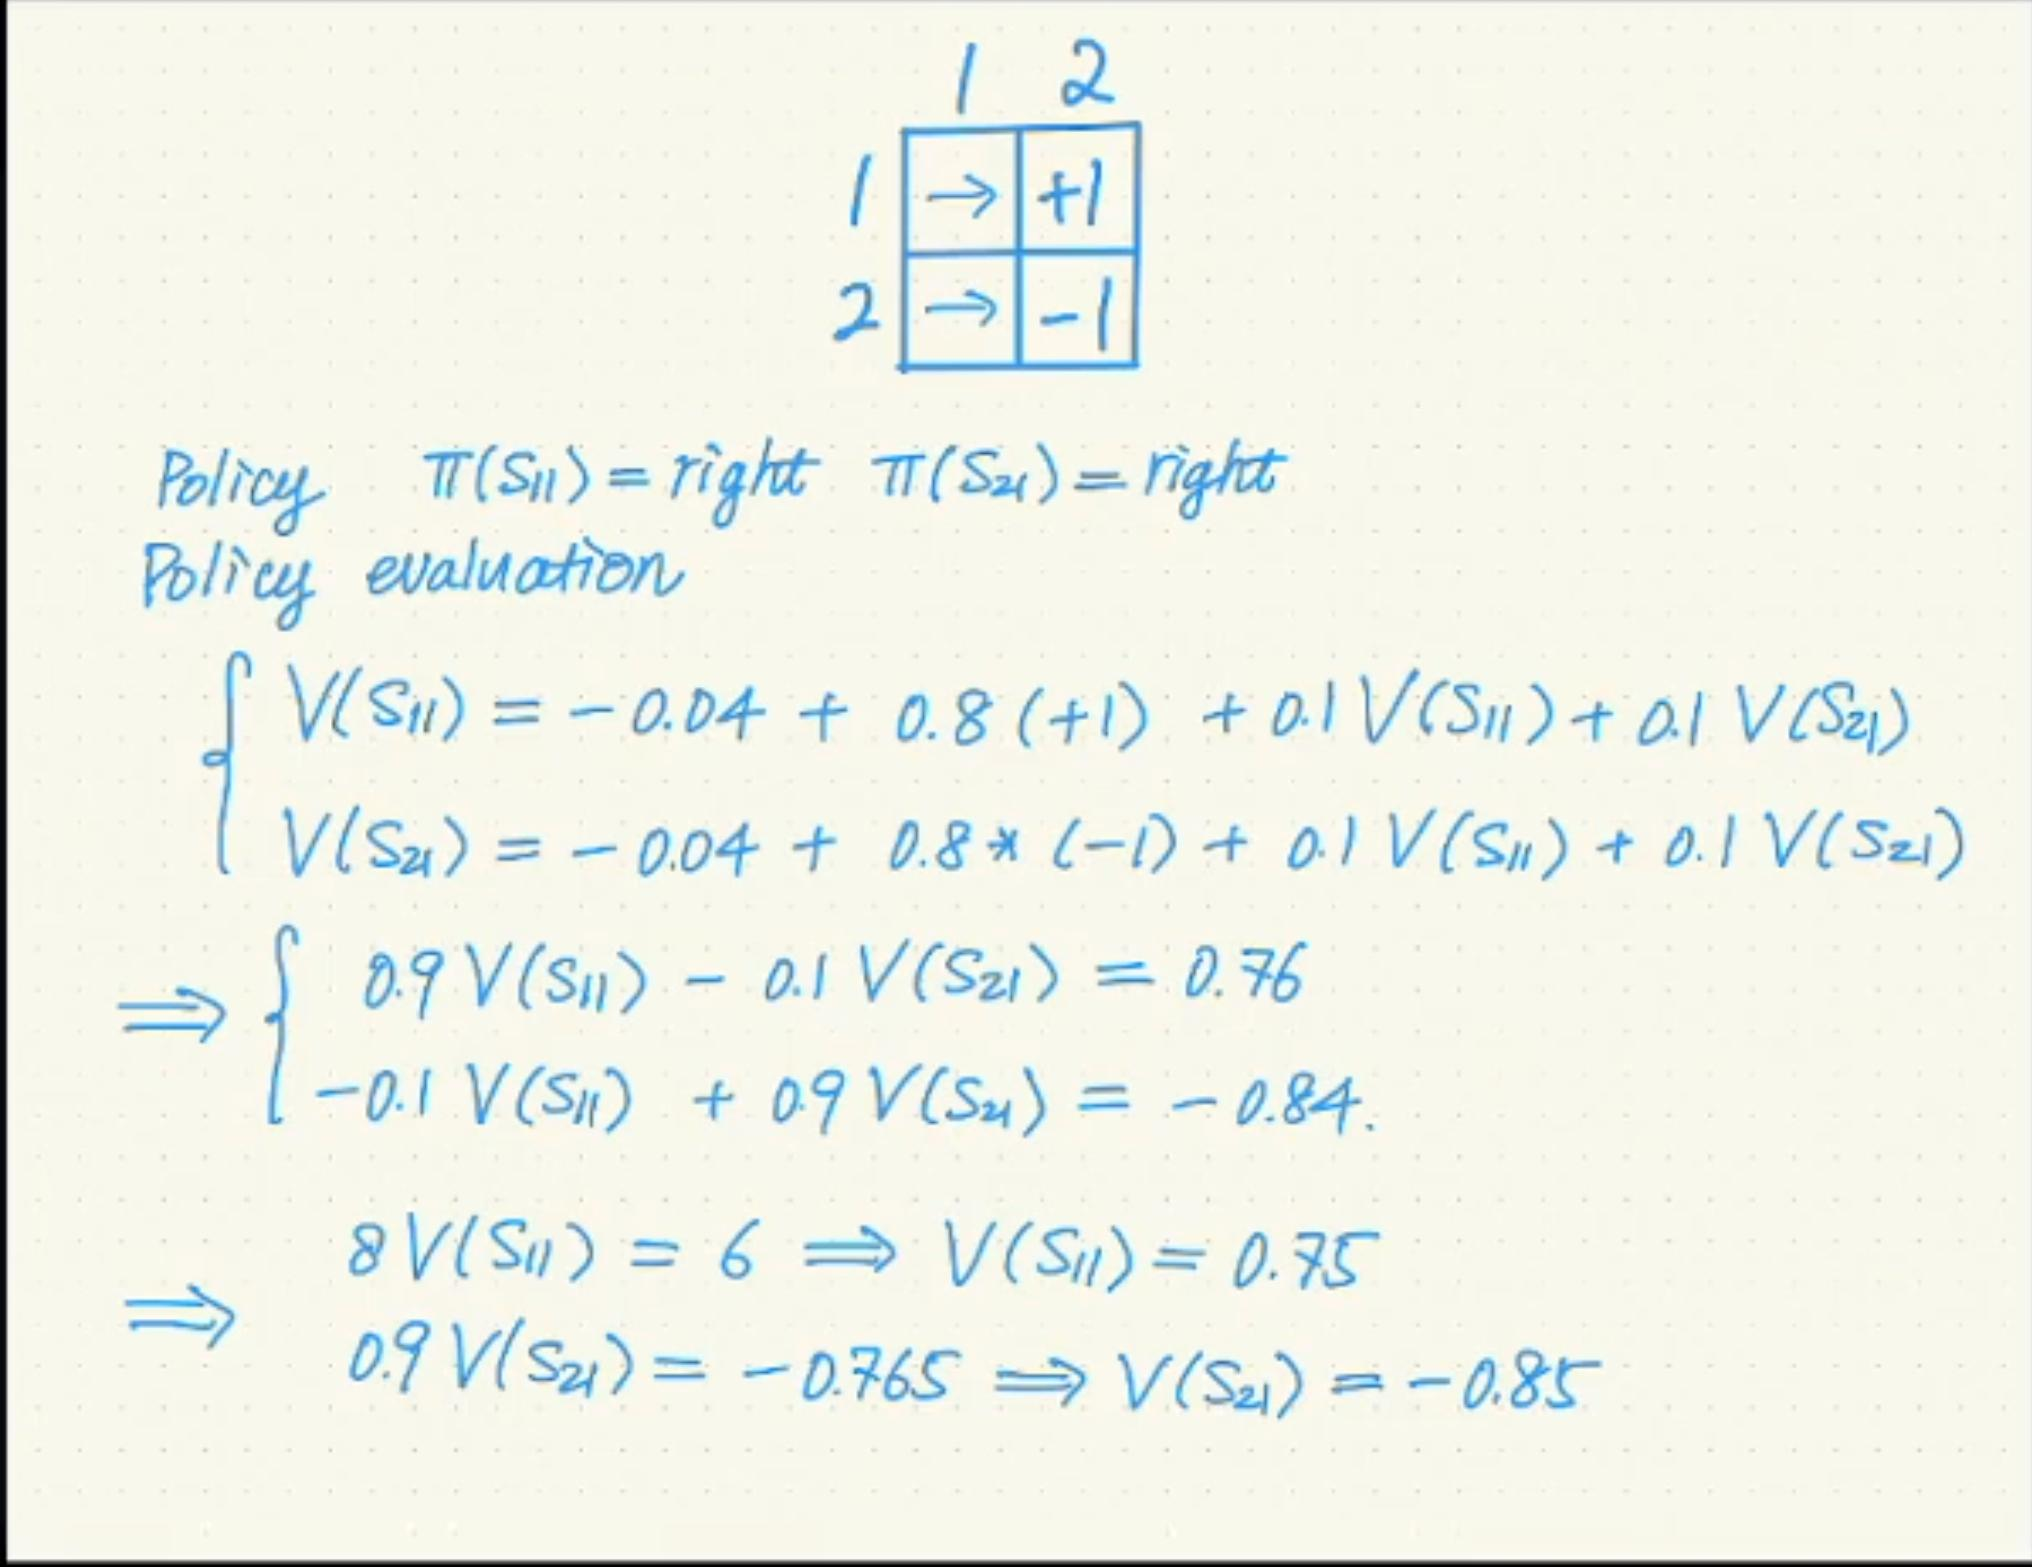 1 2
1 → +1
2 → -1
Policy π(S₁₁) = right π(S₂₁) = right
Policy evaluation
V(S₁₁) = -0.04 + 0.8 (+1) + 0.1 V(S₁₁) + 0.1 V(S₂₁)
V(S₂₁) = -0.04 + 0.8 * (-1) + 0.1 V(S₁₁) + 0.1 V(S₂₁)
⇒ { 0.9 V(S₁₁) - 0.1 V(S₂₁) = 0.76
-0.1 V(S₁₁) + 0.9 V(S₂₁) = -0.84.
8 V(S₁₁) = 6 ⇒ V(S₁₁) = 0.75
⇒ 0.9 V(S₂₁) = -0.765 ⇒ V(S₂₁) = -0.85